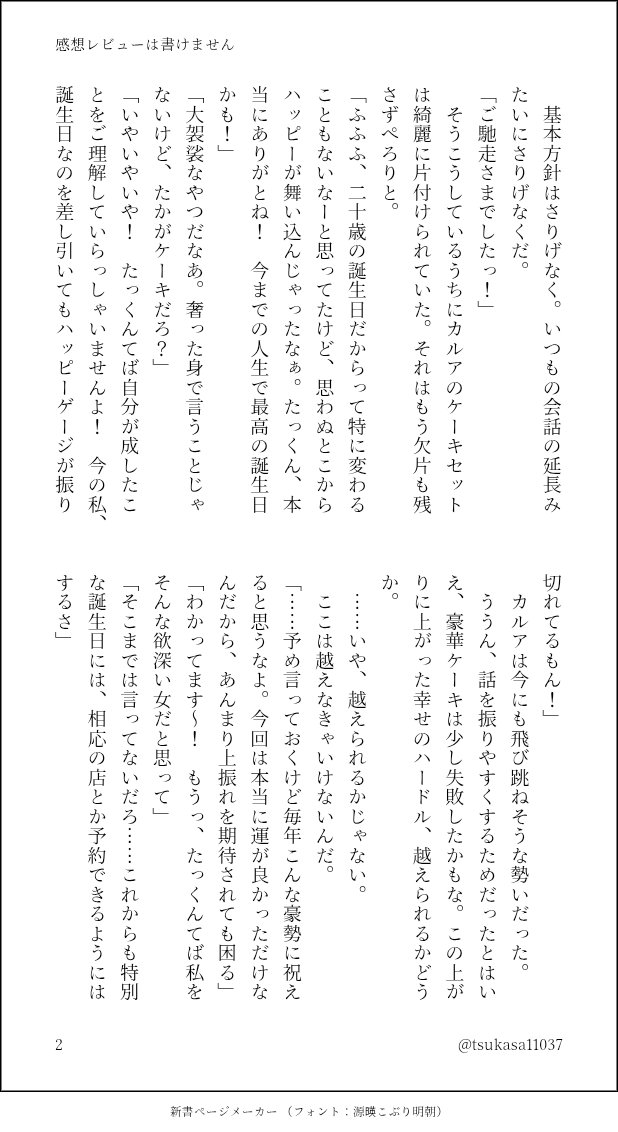 感想レビューは書けません
　基本方針はさりげなく。いつもの会話の延長み
たいにさりげなくだ。
「ご馳走さまでしたっ！」
　そうこうしているうちにカルアのケーキセット
は綺麗に片付けられていた。それはもう欠片も残
さずぺろりと。
「ふふふ、二十歳の誕生日だからって特に変わる
こともないなーと思ってたけど、思わぬとこから
ハッピーが舞い込んじゃったなぁ。たっくん、本
当にありがとね！　今までの人生で最高の誕生日
かも！」
「大袈裟なやつだなあ。奢った身で言うことじゃ
ないけど、たかがケーキだろ？」
「いやいやいや！　たっくんてば自分が成したこ
とをご理解していらっしゃいませんよ！　今の私、
誕生日なのを差し引いてもハッピーゲージが振り
切れてるもん！」
　カルアは今にも飛び跳ねそうな勢いだった。
　ううん、話を振りやすくするためだったとはい
え、豪華ケーキは少し失敗したかもな。この上が
りに上がった幸せのハードル、越えられるかどう
か。
　……いや、越えられるかじゃない。
　ここは越えなきゃいけないんだ。
「……予め言っておくけど毎年こんな豪勢に祝え
ると思うなよ。今回は本当に運が良かっただけな
んだから、あんまり上振れを期待されても困る」
「わかってます〜！　もうっ、たっくんてば私を
そんな欲深い女だと思って」
「そこまでは言ってないだろ……これからも特別
な誕生日には、相応の店とか予約できるようには
するさ」
2
@tsukasa11037
新書ページメーカー（フォント：源暎こぶり明朝）